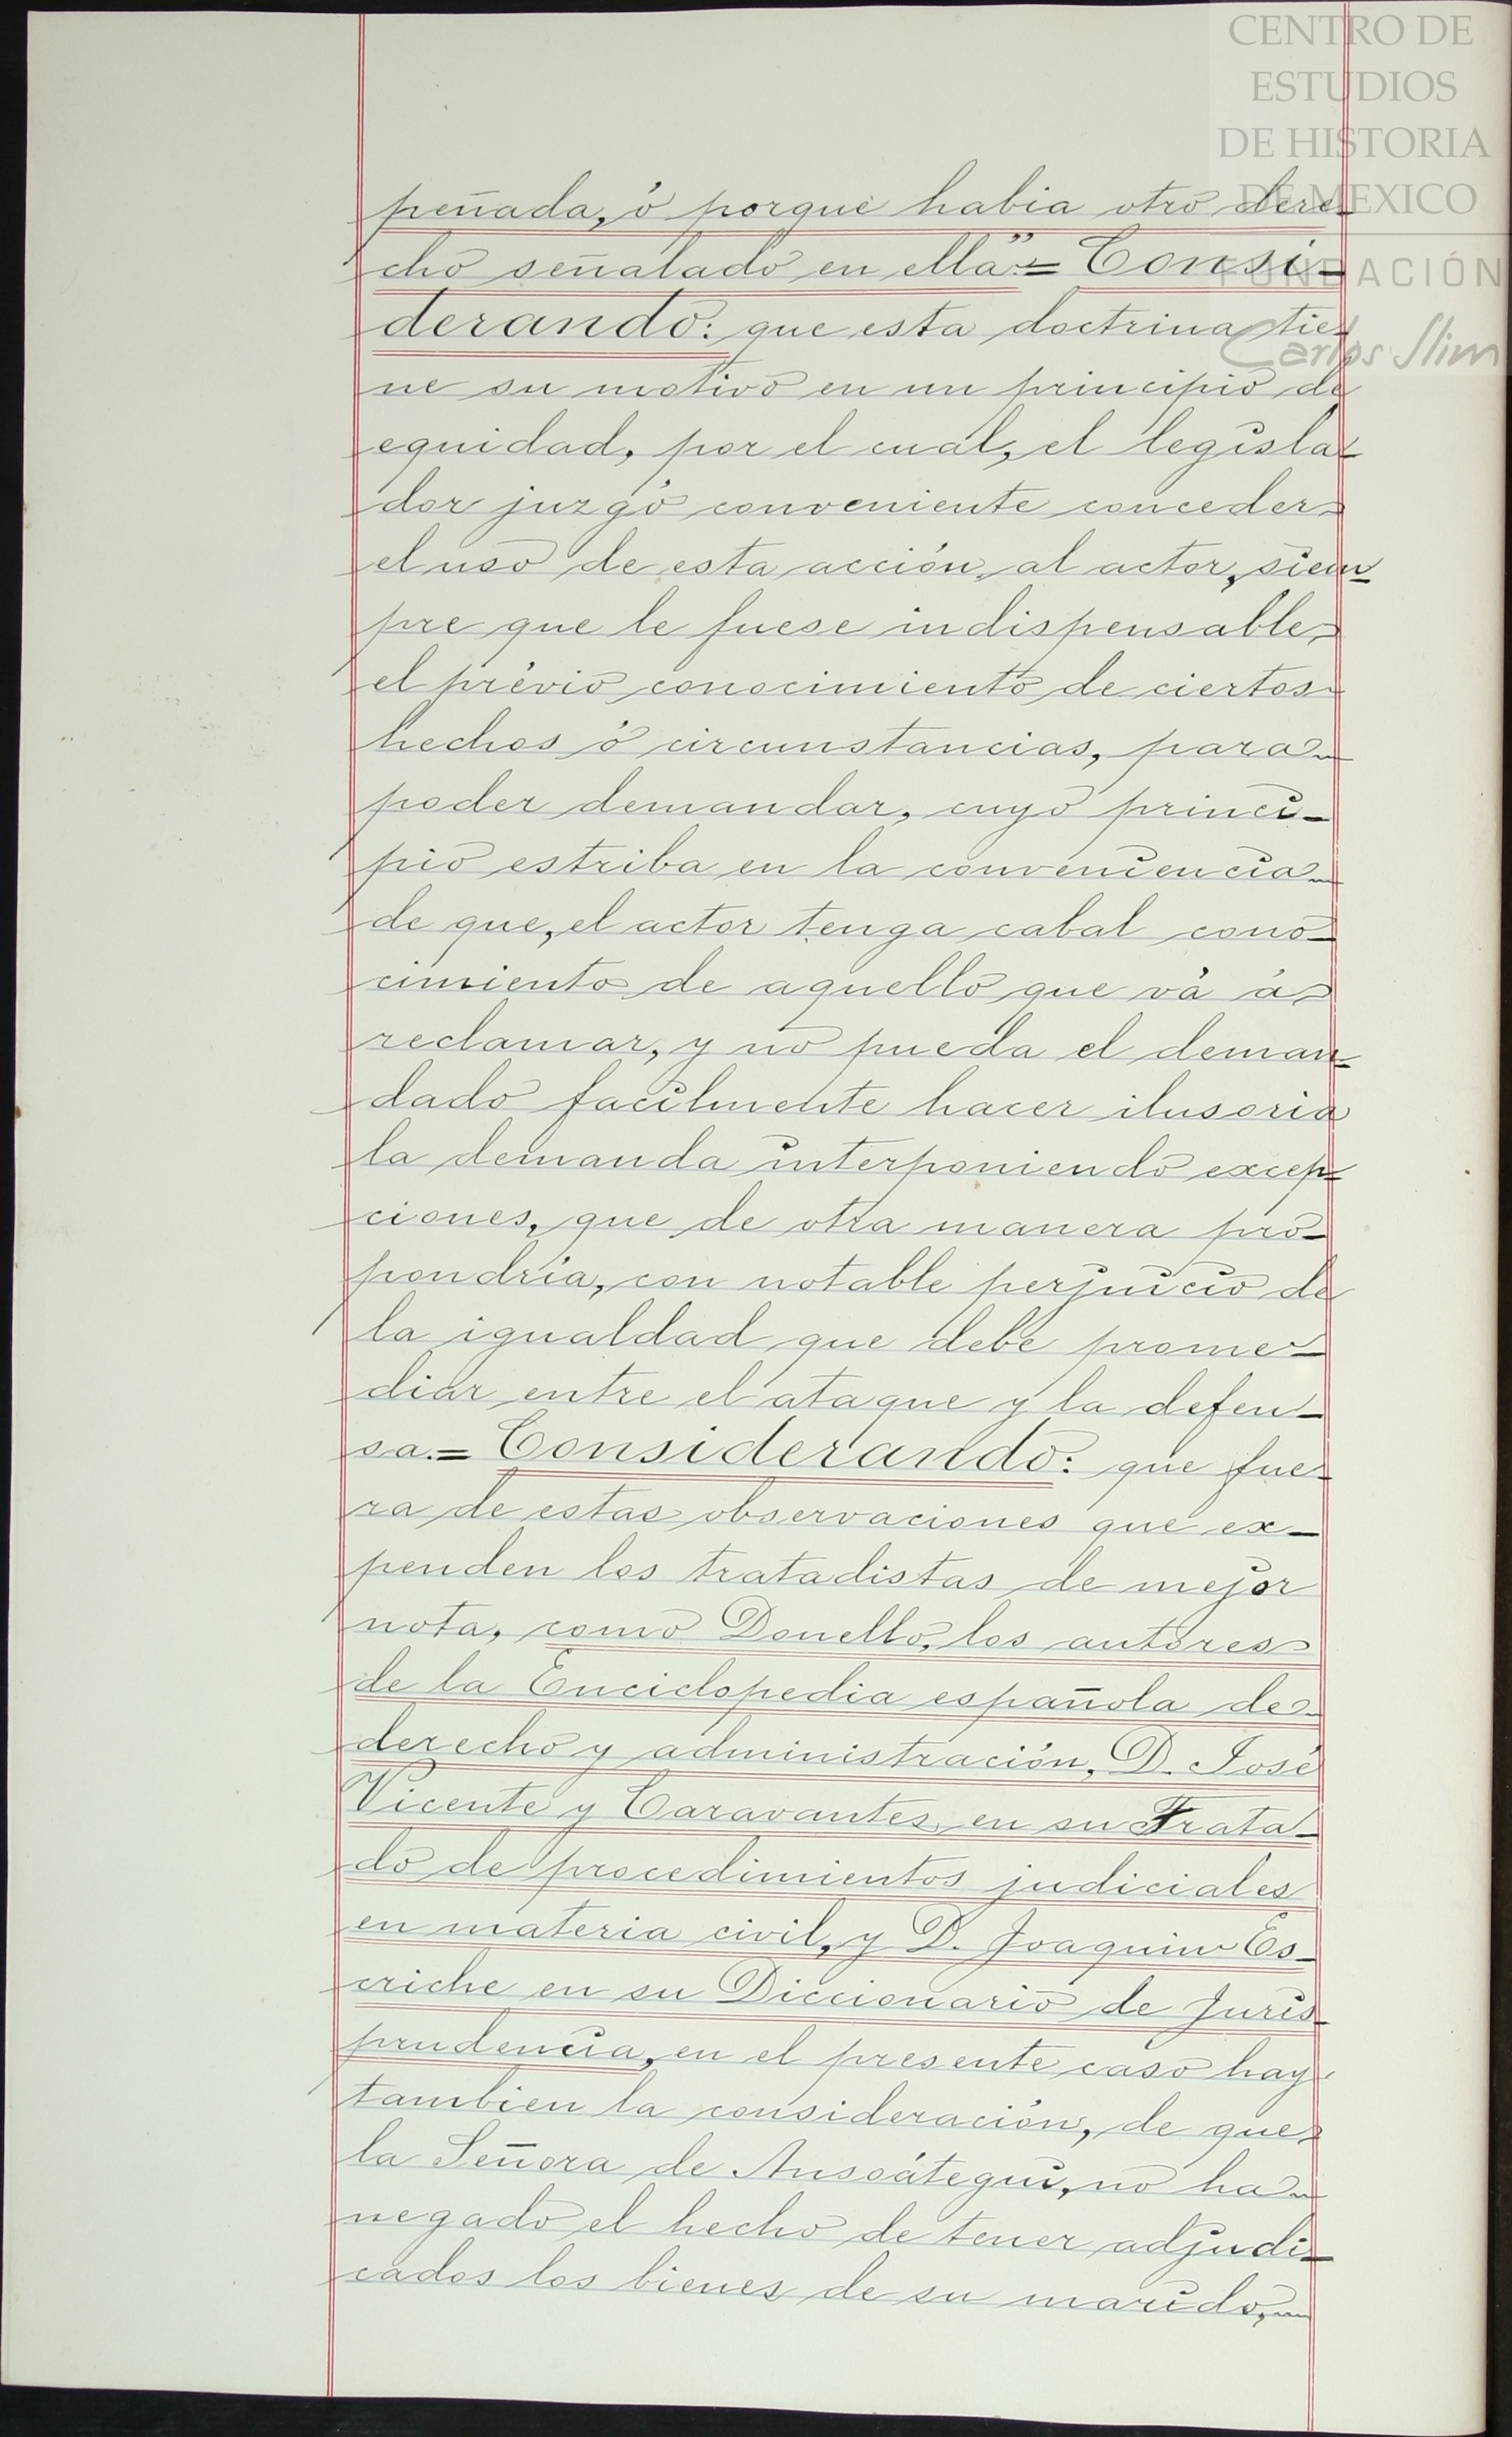 CENTRO DE
ESTUDIOS
DE HISTORIA
DE MEXICO
FUNDACIÓN
Carlos Slim
peñada, ó porque habia otro dere-
cho señalado en ella".= Consi-
derando: que esta doctrina tie-
ne su motivo en un principio de
equidad, por el cual, el legisla-
dor juzgó conveniente conceder
el uso de esta acción, al actor, siem-
pre que le fuese indispensable,
el prévio conocimiento de ciertos
hechos ó circunstancias, para
poder demandar, cuyo princi-
pio estriba en la conveniencia
de que, el actor tenga cabal cono-
cimiento de aquello que vá á
reclamar, y no pueda el deman-
dado facilmente hacer ilusoria
la demanda interponiendo excep-
ciones, que de otra manera pro-
pondria, con notable perjuicio de
la igualdad que debe prome-
diar entre el ataque y la defen-
sa.= Considerando: que fue-
ra de estas observaciones que ex-
penden los tratadistas de mejor
nota, como Donello, los autores
de la Enciclopedia española de
derecho y administración, D. José
Vicente y Caravantes, en su Trata-
do de procedimientos judiciales
en materia civil, y D. Joaquin Es-
criche en su Diccionario de Juris-
prudencia, en el presente caso hay
tambien la consideración, de que
la Señora de Ansoátegui, no ha
negado el hecho de tener adjudi-
cados los bienes de su marido,